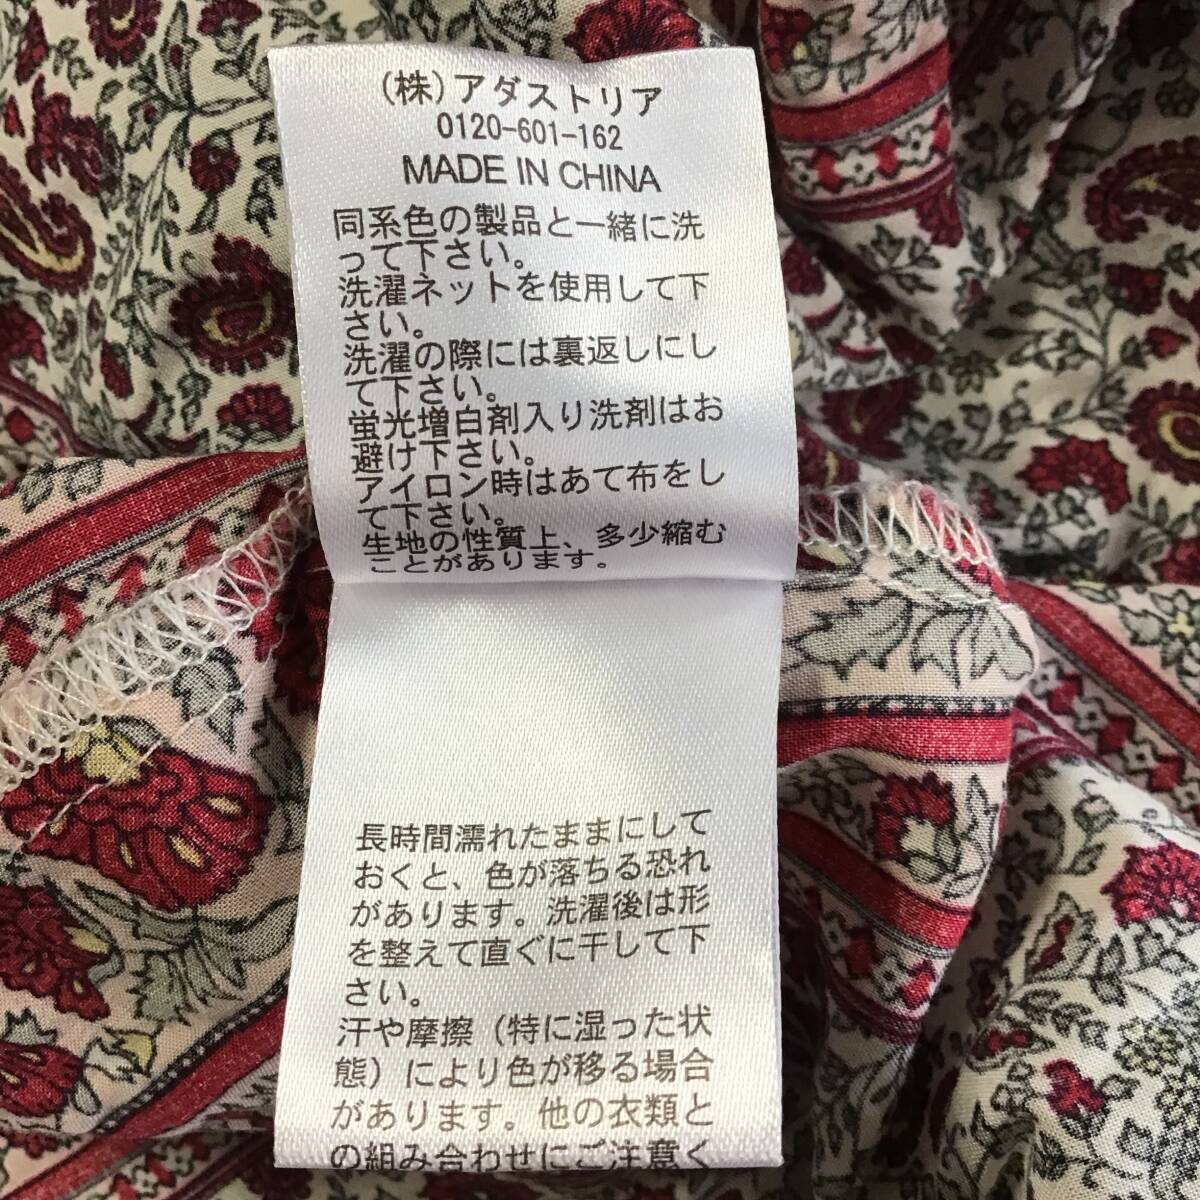 (株)アダストリア
0120-601-162
MADE IN CHINA
同系色の製品と一緒に洗
って下さい。
洗濯ネットを使用して下
さい。
洗濯の際には裏返しにし
て下さい。
蛍光増白剤入り洗剤はお
避け下さい。
アイロン時はあて布をし
て下さい。
生地の性質上、多少縮む
ことがあります。
長時間濡れたままにして
おくと、色が落ちる恐れ
があります。洗濯後は形
を整えて直ぐに干して下
さい。
汗や摩擦(特に湿った状
態)により色が移る場合
があります。他の衣類と
の組み合わせにご注意く